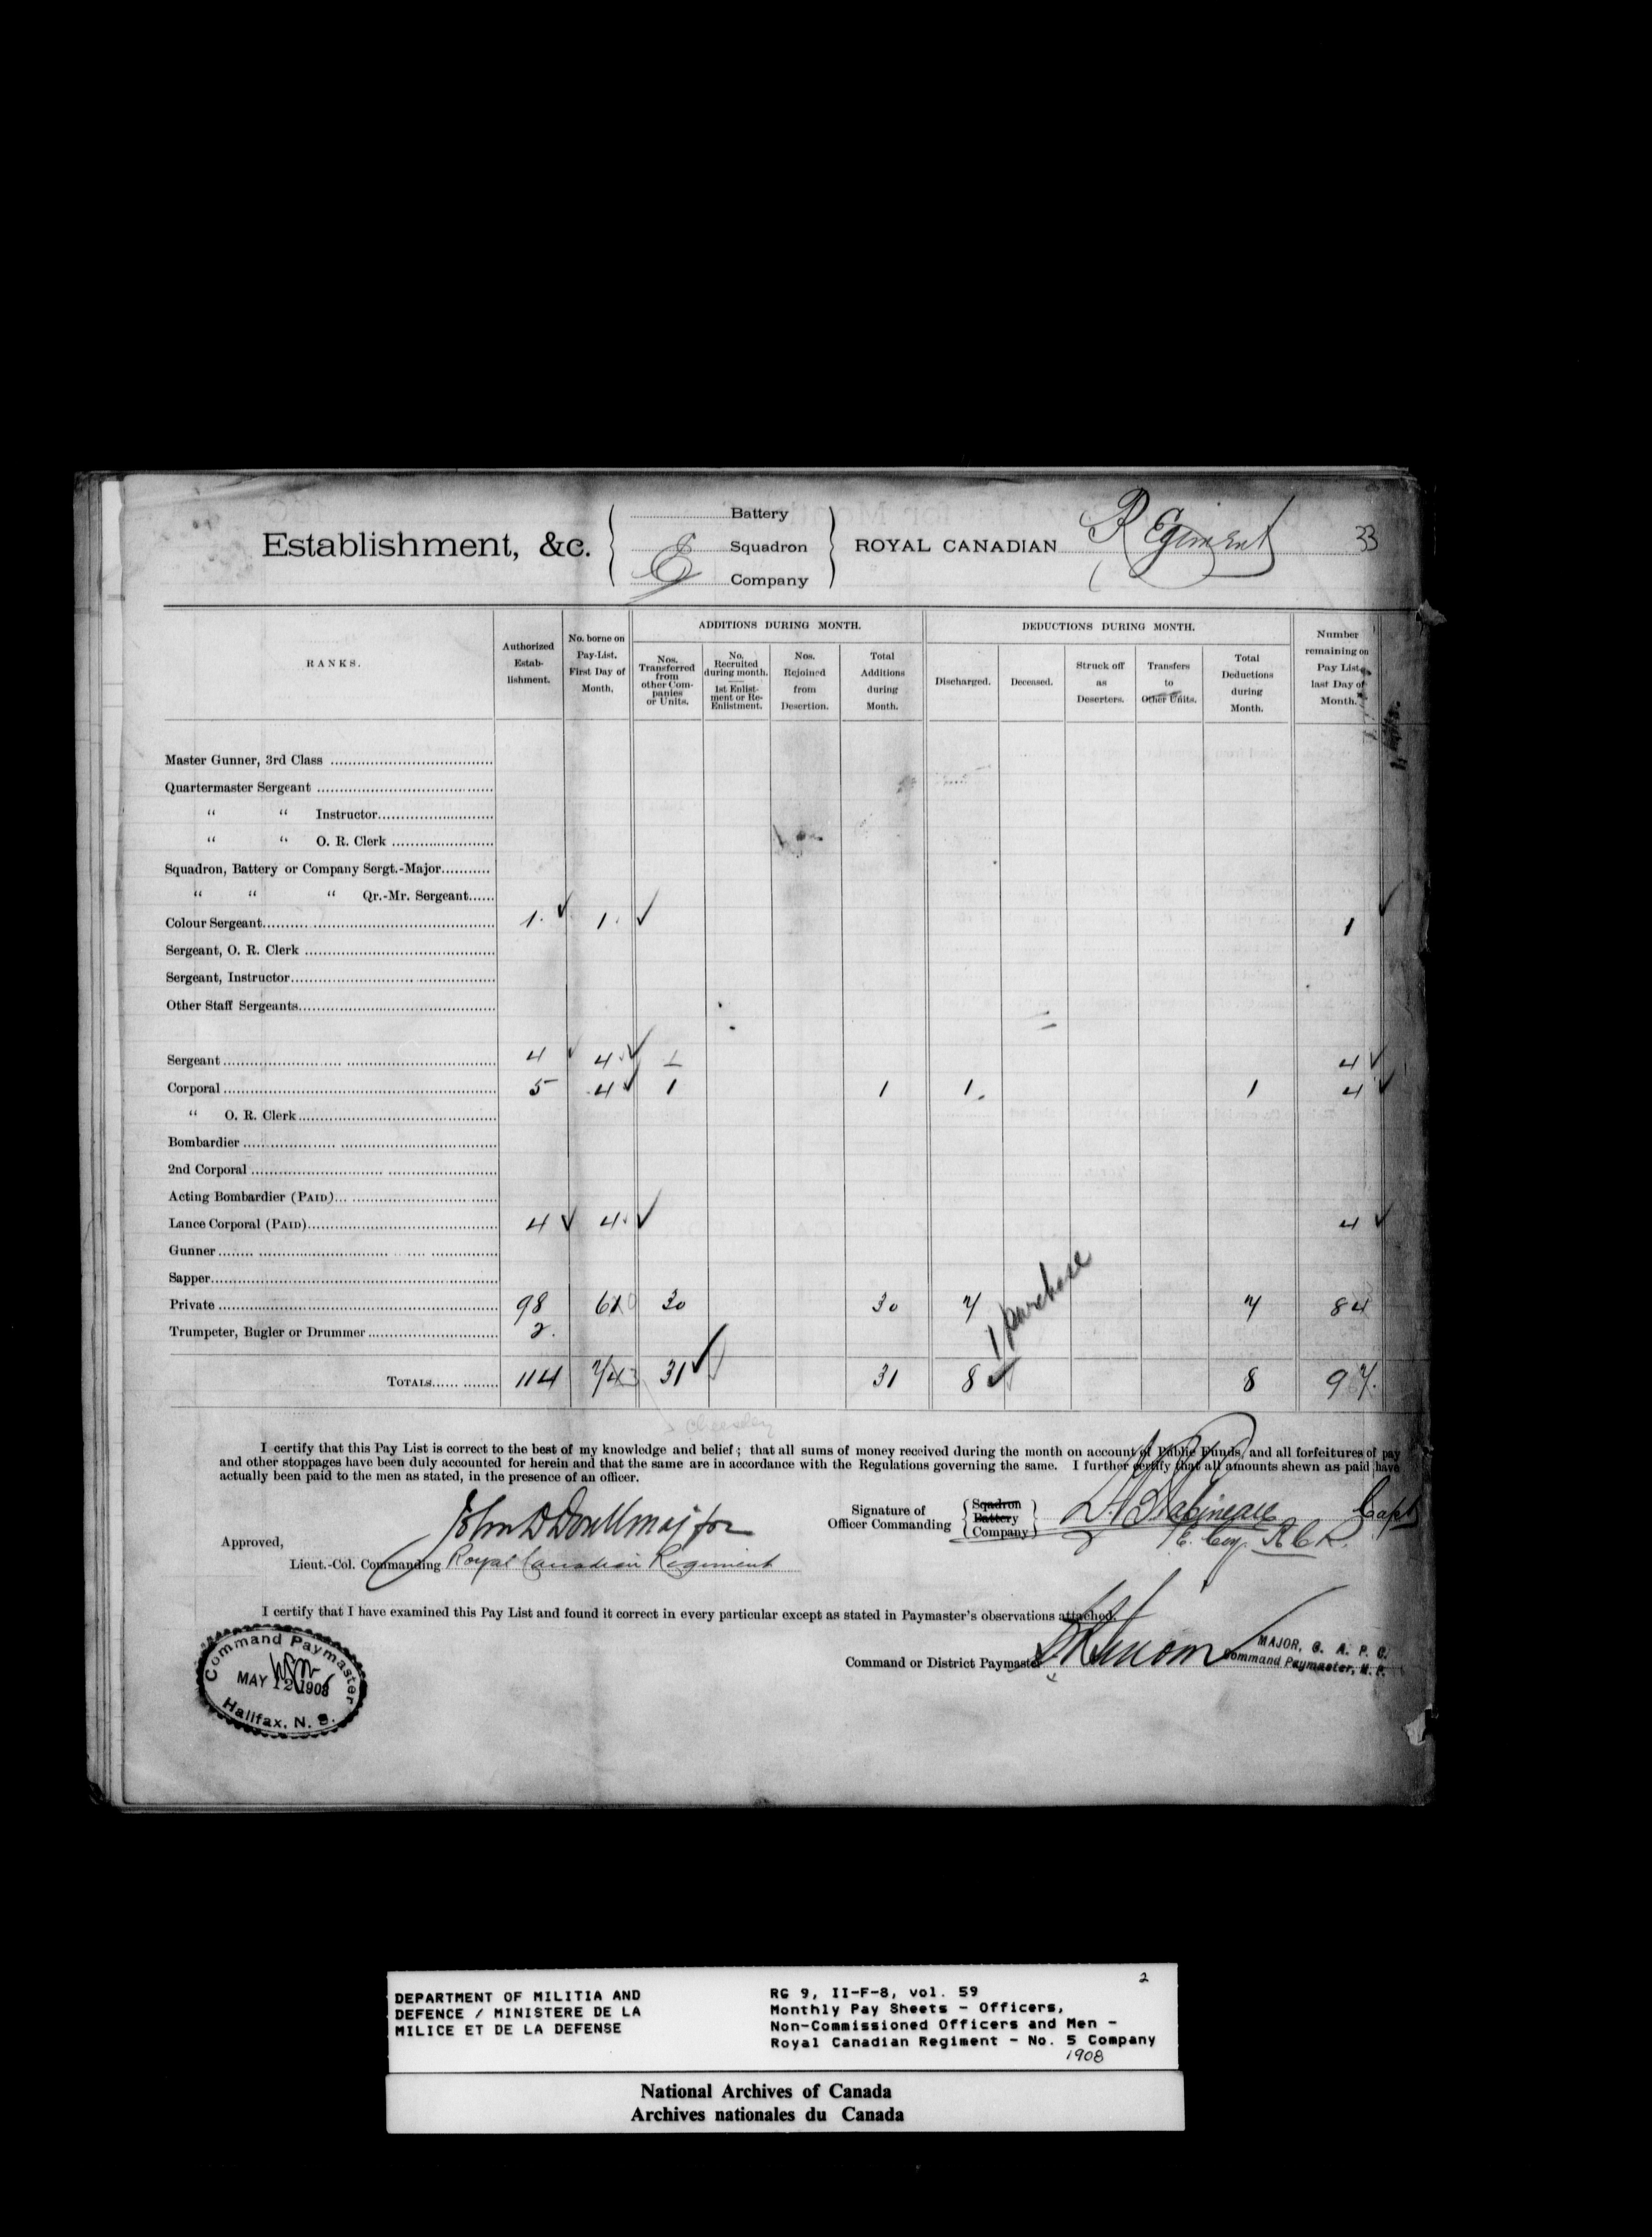 Establishment, &c.
Battery
Squadron
E Company
ROYAL CANADIAN Regiment 33
RANKS.
Authorized Establishment.
No. borne on Pay-List. First Day of Month.
ADDITIONS DURING MONTH.
Nos. Transferred from other Companies or Units.
No. Recruited during month. 1st Enlistment or Re-Enlistment.
Nos. Rejoined from Desertion.
Total Additions during Month.
DEDUCTIONS DURING MONTH.
Discharged.
Deceased.
Struck off as Deserters.
Transfers to Other Units.
Total Deductions during Month.
Number remaining on Pay List last Day of Month.
Master Gunner, 3rd Class
Quartermaster Sergeant
“ “ Instructor
“ “ O. R. Clerk
Squadron, Battery or Company Sergt.-Major
“ “ “ Qr.-Mr. Sergeant
Colour Sergeant 1 1 1
Sergeant, O. R. Clerk
Sergeant, Instructor
Other Staff Sergeants
Sergeant 4 4 4
Corporal 5 4 1 1 1 1 4
“ O. R. Clerk
Bombardier
2nd Corporal
Acting Bombardier (PAID)
Lance Corporal (PAID) 4 4 4
Gunner
Sapper
Private 98 61 30 30 7 1 purchase 7 84
Trumpeter, Bugler or Drummer 2.
TOTALS 114 74 31 31 8 8 97.
I certify that this Pay List is correct to the best of my knowledge and belief; that all sums of money received during the month on account of Public Funds, and all forfeitures of pay
and other stoppages have been duly accounted for herein and that the same are in accordance with the Regulations governing the same. I further certify that all amounts shewn as paid have
actually been paid to the men as stated, in the presence of an officer.
Signature of Officer Commanding
Sqadron
Battery
Company
Capt
E. Coy. R C R.
Approved,
Major for
Lieut.-Col. Commanding Royal Canadian Regiment
I certify that I have examined this Pay List and found it correct in every particular except as stated in Paymaster's observations attached.
Command or District Paymaster
MAJOR, C. A. P. C.
Command Paymaster, M. P.
Command Paymaster
MAY 12 1908
Halifax, N. S.
2
DEPARTMENT OF MILITIA AND
DEFENCE / MINISTERE DE LA
MILICE ET DE LA DEFENSE
RG 9, II-F-8, vol. 59
Monthly Pay Sheets - Officers,
Non-Commissioned Officers and Men -
Royal Canadian Regiment - No. 5 Company
1908
National Archives of Canada
Archives nationales du Canada